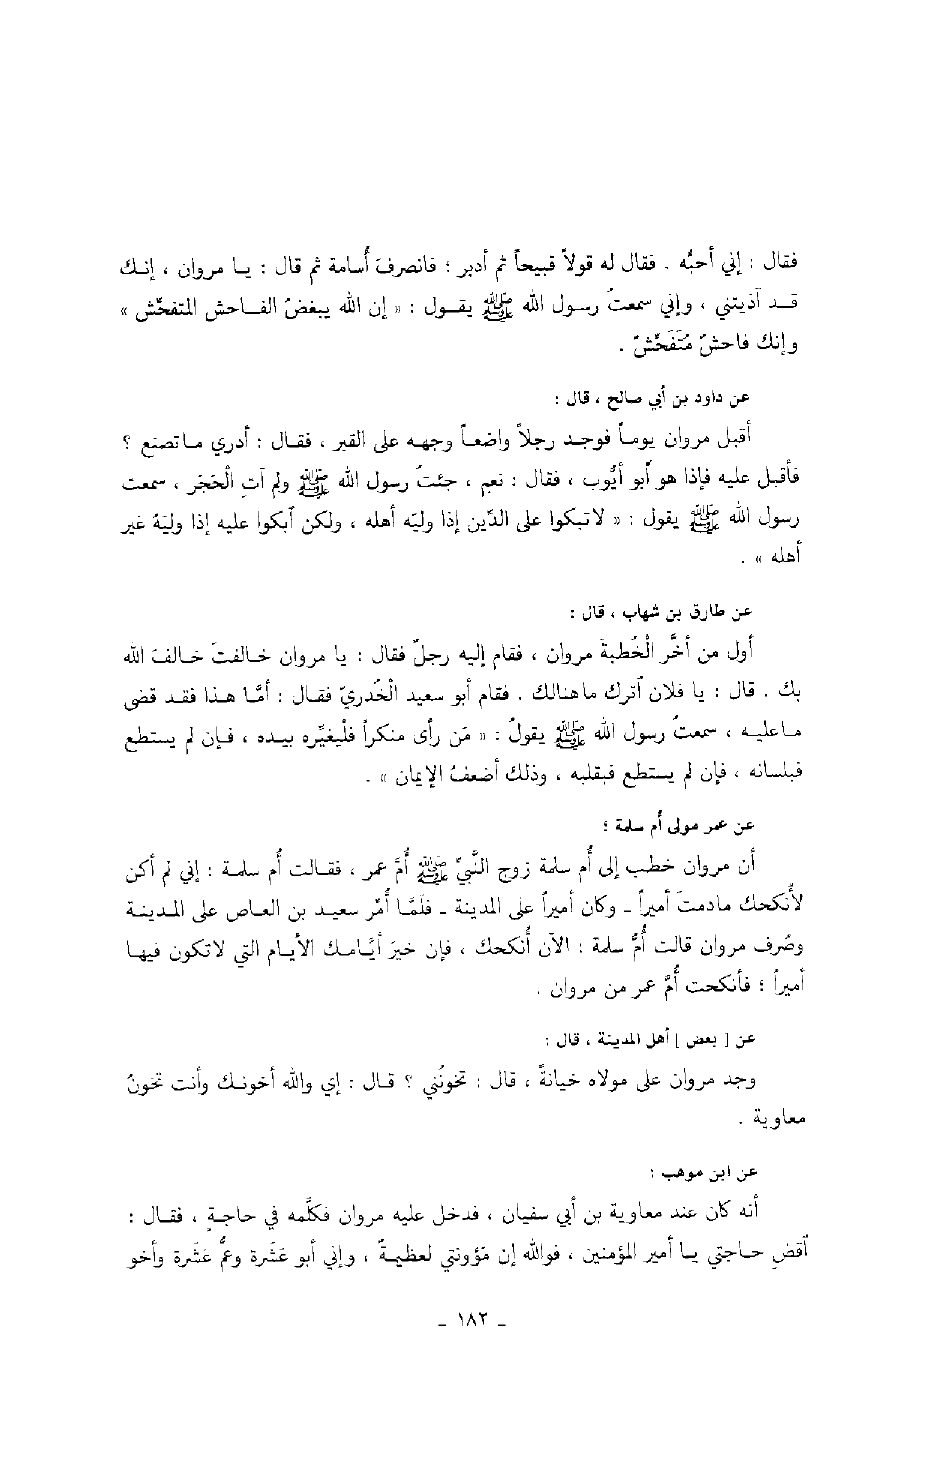 فقال : إني أحبُّه . فقال له قولاً قبيحاً ثم أدبر ؛ فانصرفَ أُسامة ثم قال : يـا مروان ، إنـك
قـد آذيتني ، وإني سمعتُ رسول الله ﷺ يقـول : « إن الله يبغضُ الفـاحش المتفحّش »
وإنك فاحشٌ مُتَفَحّشٌ .
عن داود بن أبي صالح ، قال :
أقبل مروان يومـاً فوجـد رجلاً واضعـاً وجهـه على القبر ، فقـال : أدري مـا تصنع ؟
فأقبل عليه فإذا هو أبو أيُّوب ، فقال : نعم ، جئتُ رسول الله ﷺ ولم آتِ الْحَجَر ، سمعت
رسول الله ﷺ يقول : « لاتبكوا على الدِّين إذا وليَه أهله ، ولكن آبكوا عليه إذا وليَهُ غير
أهله » .
عن طارق بن شهاب ، قال :
أول من أخَّر الْخُطبةَ مروان ، فقام إليه رجلٌ فقال : يا مروان خـالفتَ خـالفَ الله
بك . قال : يا فلان آترك ماهنالك . فقام أبو سعيد الْخُدريّ فقـال : أمَّا هـذا فقـد قضى
مـاعليـه ، سمعتُ رسول الله ﷺ يقولُ : « مَن رأى منكراً فلْيغيِّره بيـده ، فـإن لم يستطع
فبلسانه ، فإن لم يستطع فبقلبه ، وذلك أضعفُ الإيمان » .
عن عمر مولى أم سلمة ؛
أن مروان خطب إلى أُم سلمة زوج النَّبيّ ﷺ أُمَّ عمر ، فقـالت أُم سلمـة : إني لم أكن
لأُنكحك مادمتَ أميراً ـ وكان أميراً على المدينة ـ فلَمَّا أُمِّر سعيـد بن العـاص على المـدينـة
وصُرف مروان قالت أُمُّ سلمة : الآن أُنكحك ، فإن خيرَ أيَّـامـك الأيـام التي لاتكون فيهـا
أميراً ؛ فأنكحت أُمَّ عمر من مروان .
عن [ بعض ] أهل المدينة ، قال :
وجد مروان على مولاه خيانةً ، قال : تخونُني ؟ قـال : إي والله أخونـك وأنت تخونُ
معاوية .
عن ابن موهب :
أنه كان عند معاوية بن أبي سفيان ، فدخل عليه مروان فكلَّمه في حاجةٍ ، فقـال :
آقضِ حـاجتي يـا أمير المؤمنين ، فوالله إن مَؤونتي لعظيمـةٌ ، وإني أبو عَشَرة وعمُّ عَشَرة وأخو
ـ ١٨٢ ـ